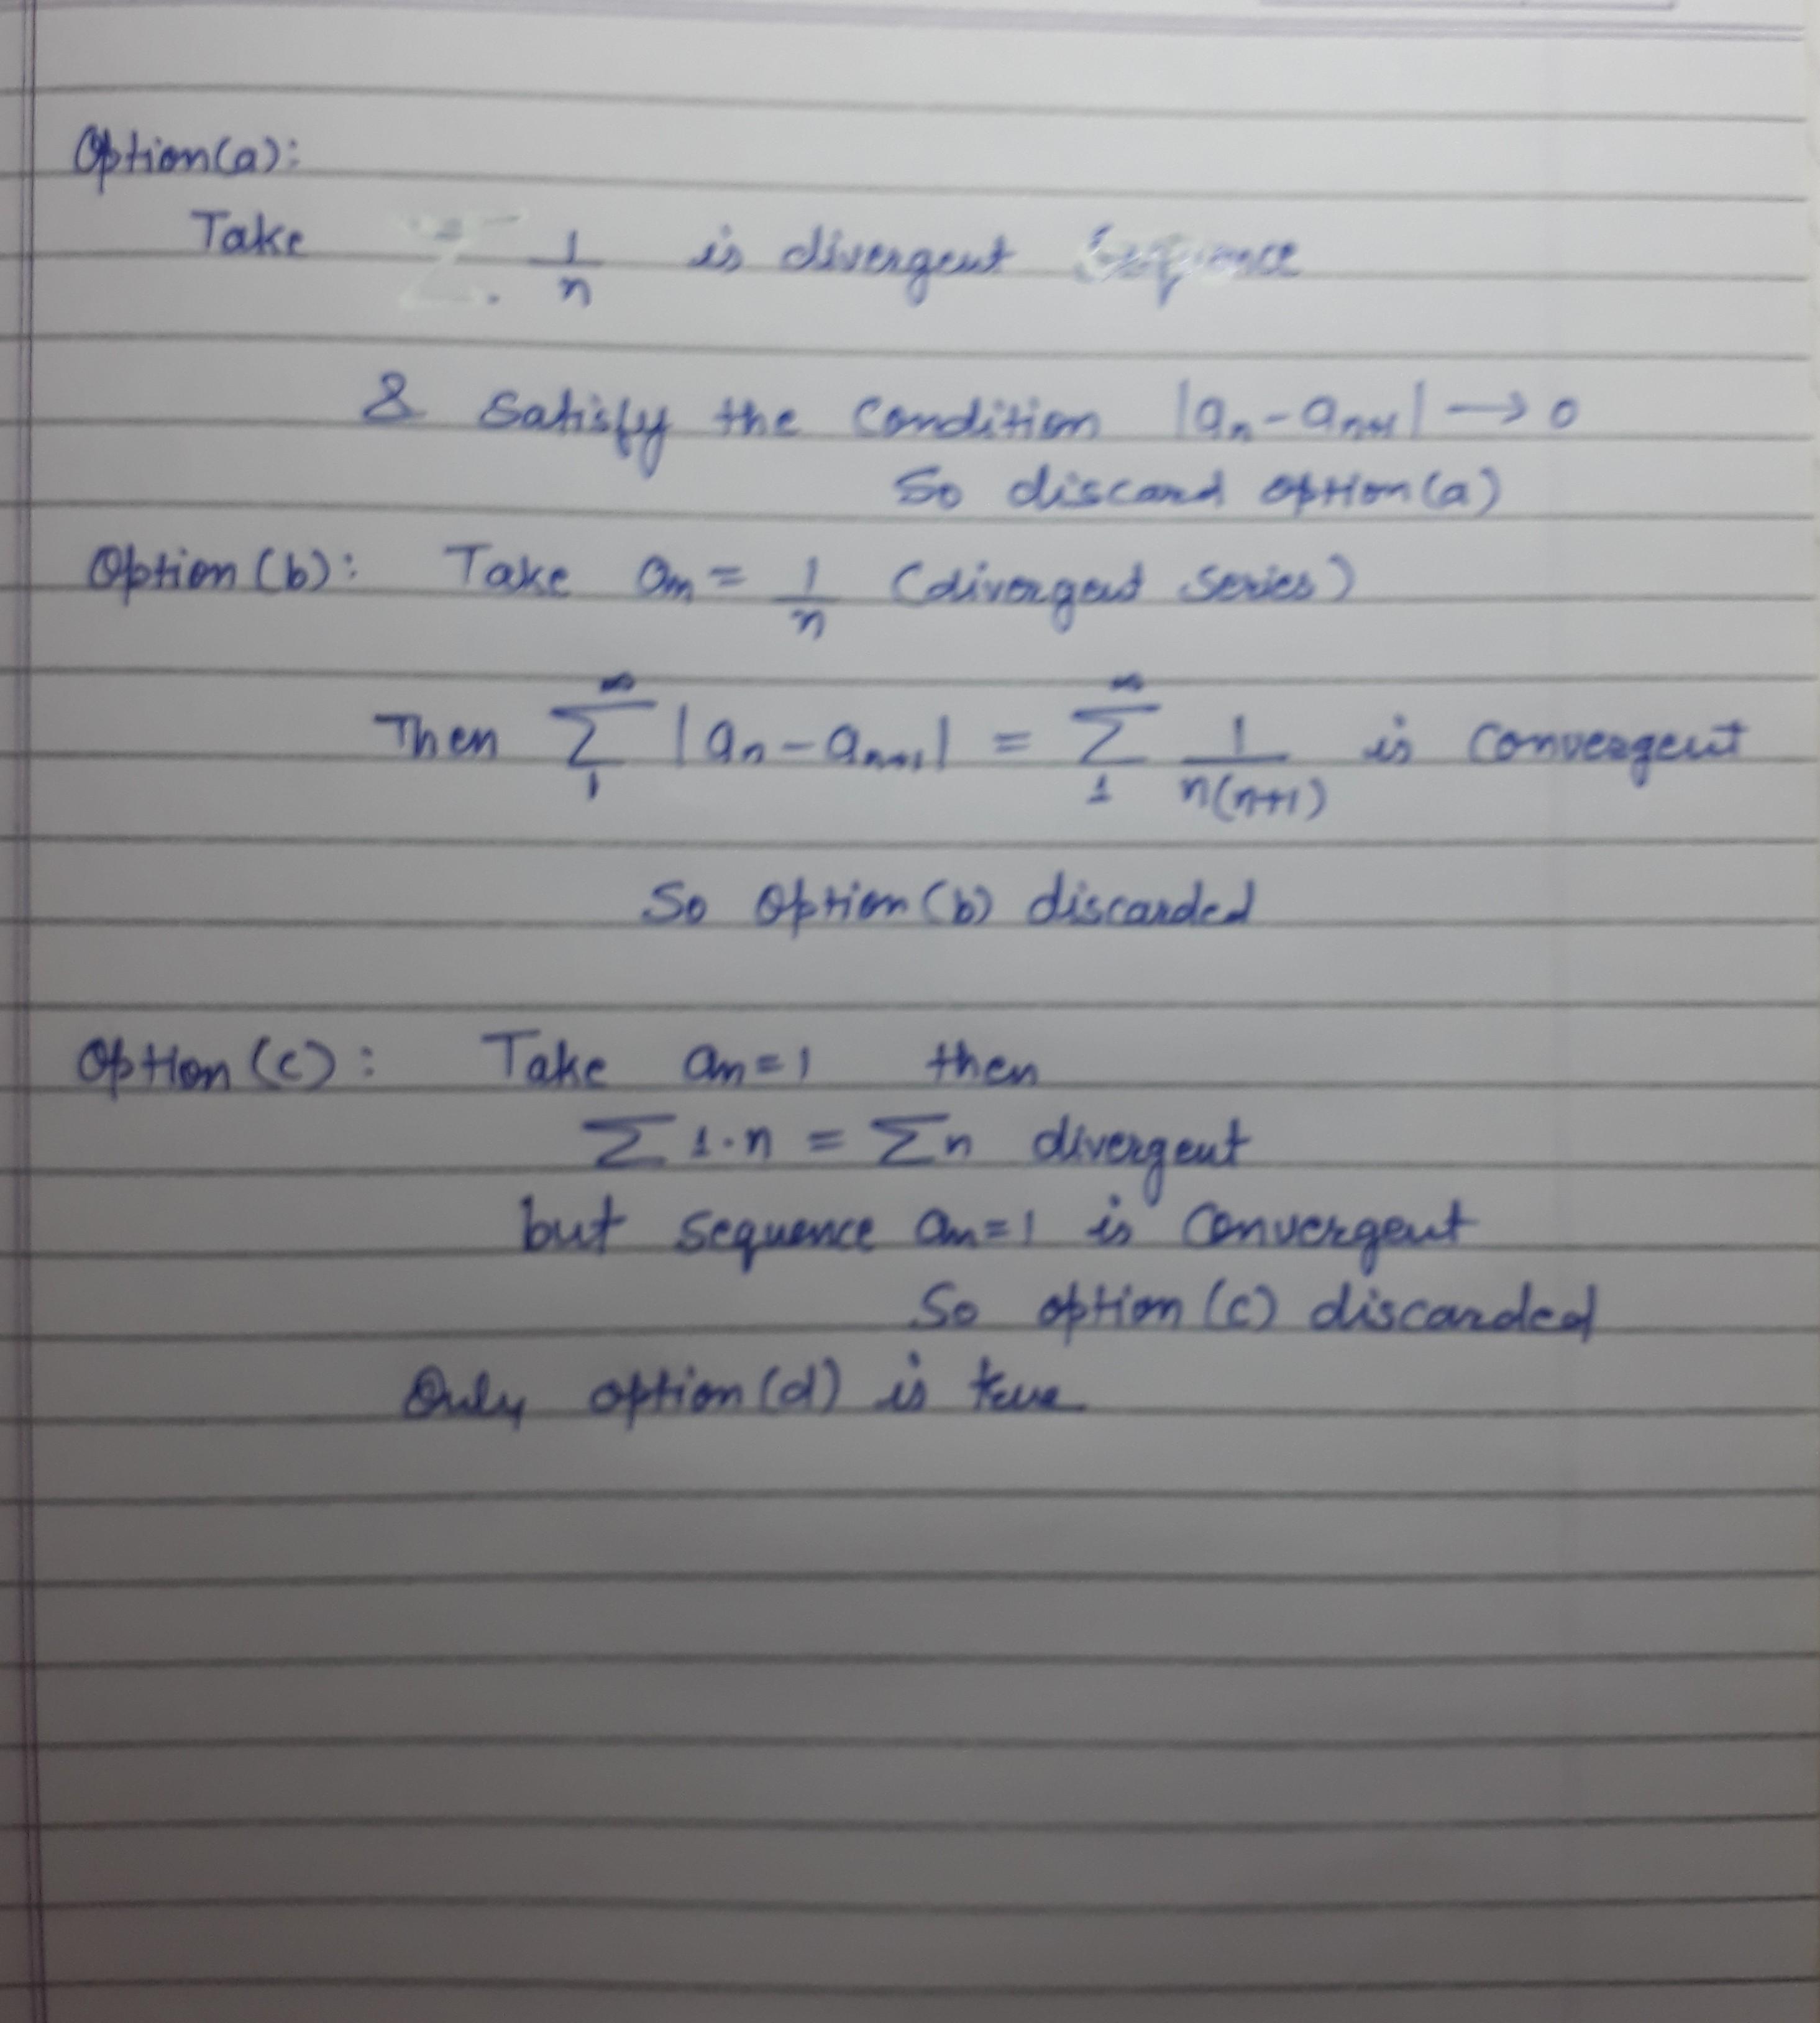 Option(a):
Take 1/n is divergent Sequence
& Satisfy the Condition |an - an+1| → 0
So discard option(a)
Option (b): Take an = 1/n (divergent series)
Then ∞∑1 |an - an+1| = ∞∑1 1/n(n+1) is convergent
So Option(b) discarded
Option (c): Take an=1 then
∑ 1·n = ∑n divergent
but sequence an=1 is Convergent
So option (c) discarded
Only option (d) is true